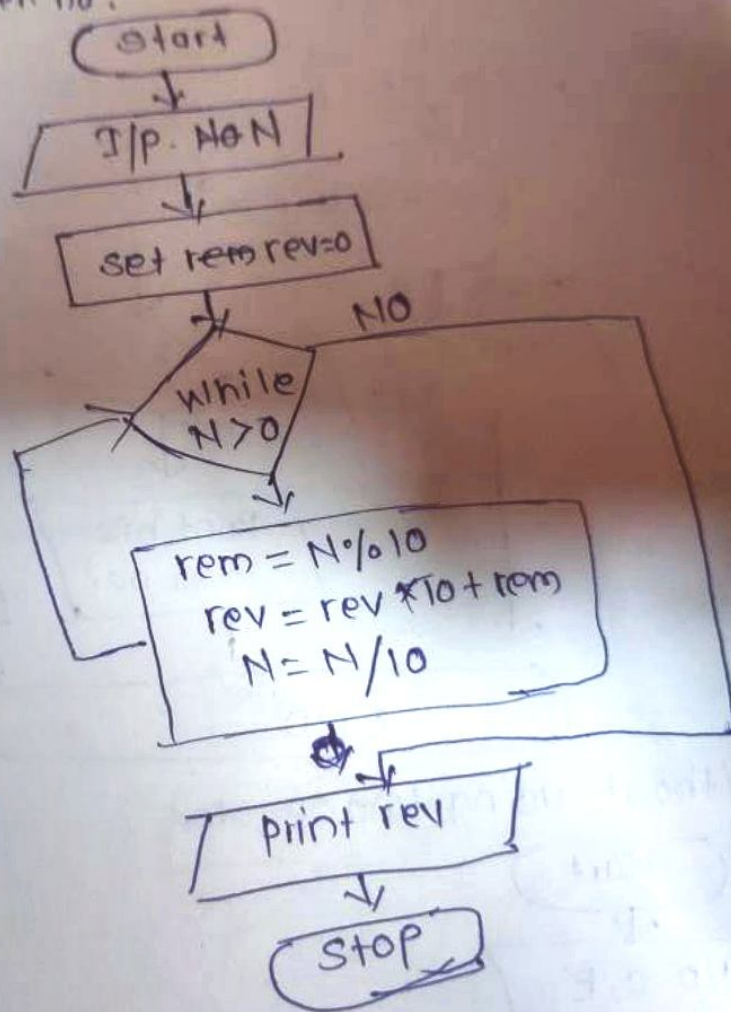 start
I/p. No N
set rem rev=0
NO
while
N>0
rem = N%10
rev = rev *10 + rem
N = N/10
print rev
stop